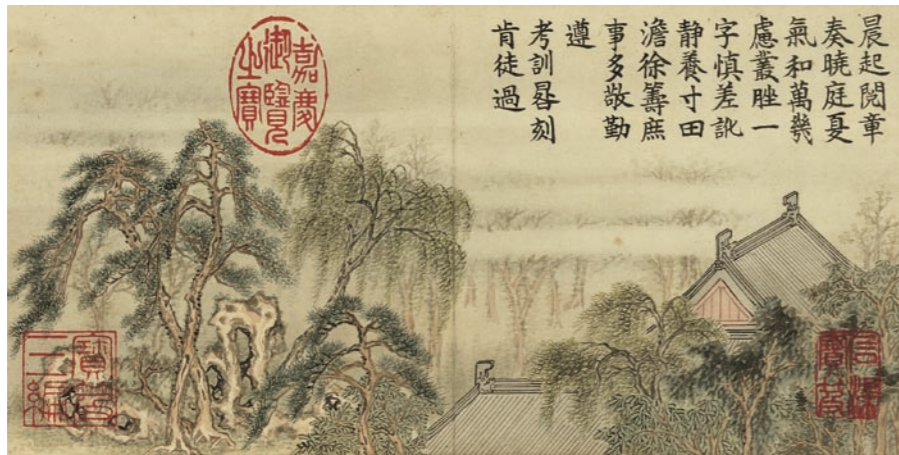 晨起閱章
奏曉庭夏
氣和萬幾
慮叢脞一
字慎差訛
靜養寸田
澹徐籌庶
事多敬勤
遵
考訓晷刻
肯徒過
嘉慶
御覽
之寶
石渠
寶笈
寶笈
三編